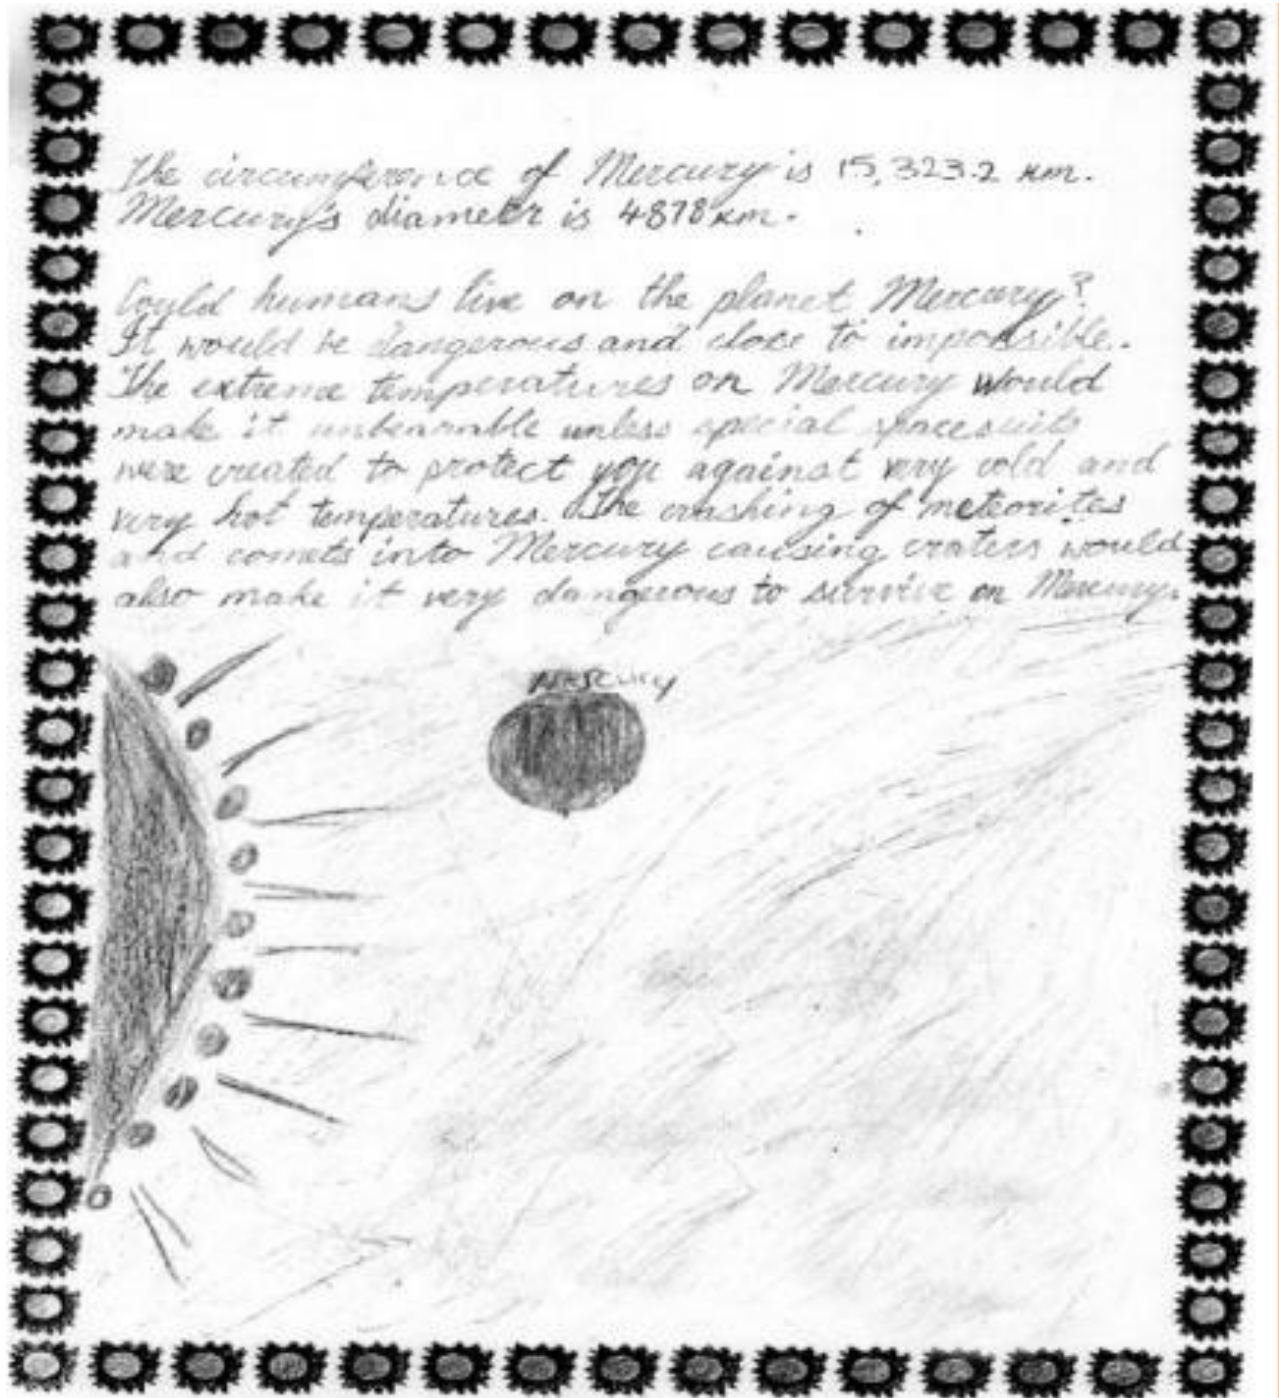 The circumference of Mercury is 15,323.2 km.
Mercury's diameter is 4878 km.
Could humans live on the planet Mercury?
It would be dangerous and close to impossible.
The extreme temperatures on Mercury would
make it unbearable unless special spacesuits
were created to protect you against very cold and
very hot temperatures. The crashing of meteorites
and comets into Mercury causing craters would
also make it very dangerous to survive on Mercury.
Mercury